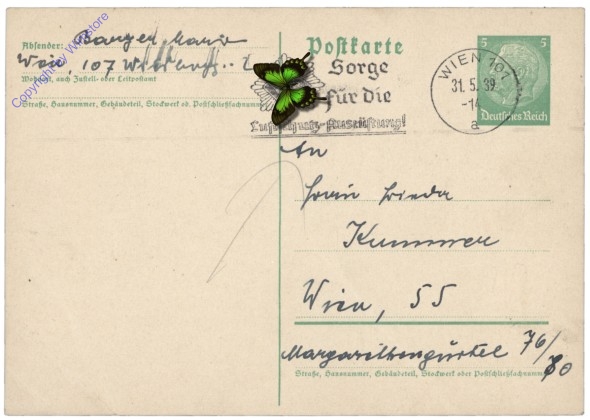 Absender: Banger Marie
Wien, 107
Wohnort, auch Zustell- oder Leitpostamt
Straße, Hausnummer, Gebäudeteil, Stockwerk od. Postschließfachnummer
Copyright by Winstore
Postkarte
Sorge
für die
Luftschutz-Ausrüstung!
WIEN 107
31. 5. 39
-14
a
5 5
Deutsches Reich
An
Frieda
Kummer
Wien, 55
Margarethengürtel 76/
Straße, Hausnummer, Gebäudeteil, Stockwerk oder Postschließfachnummer